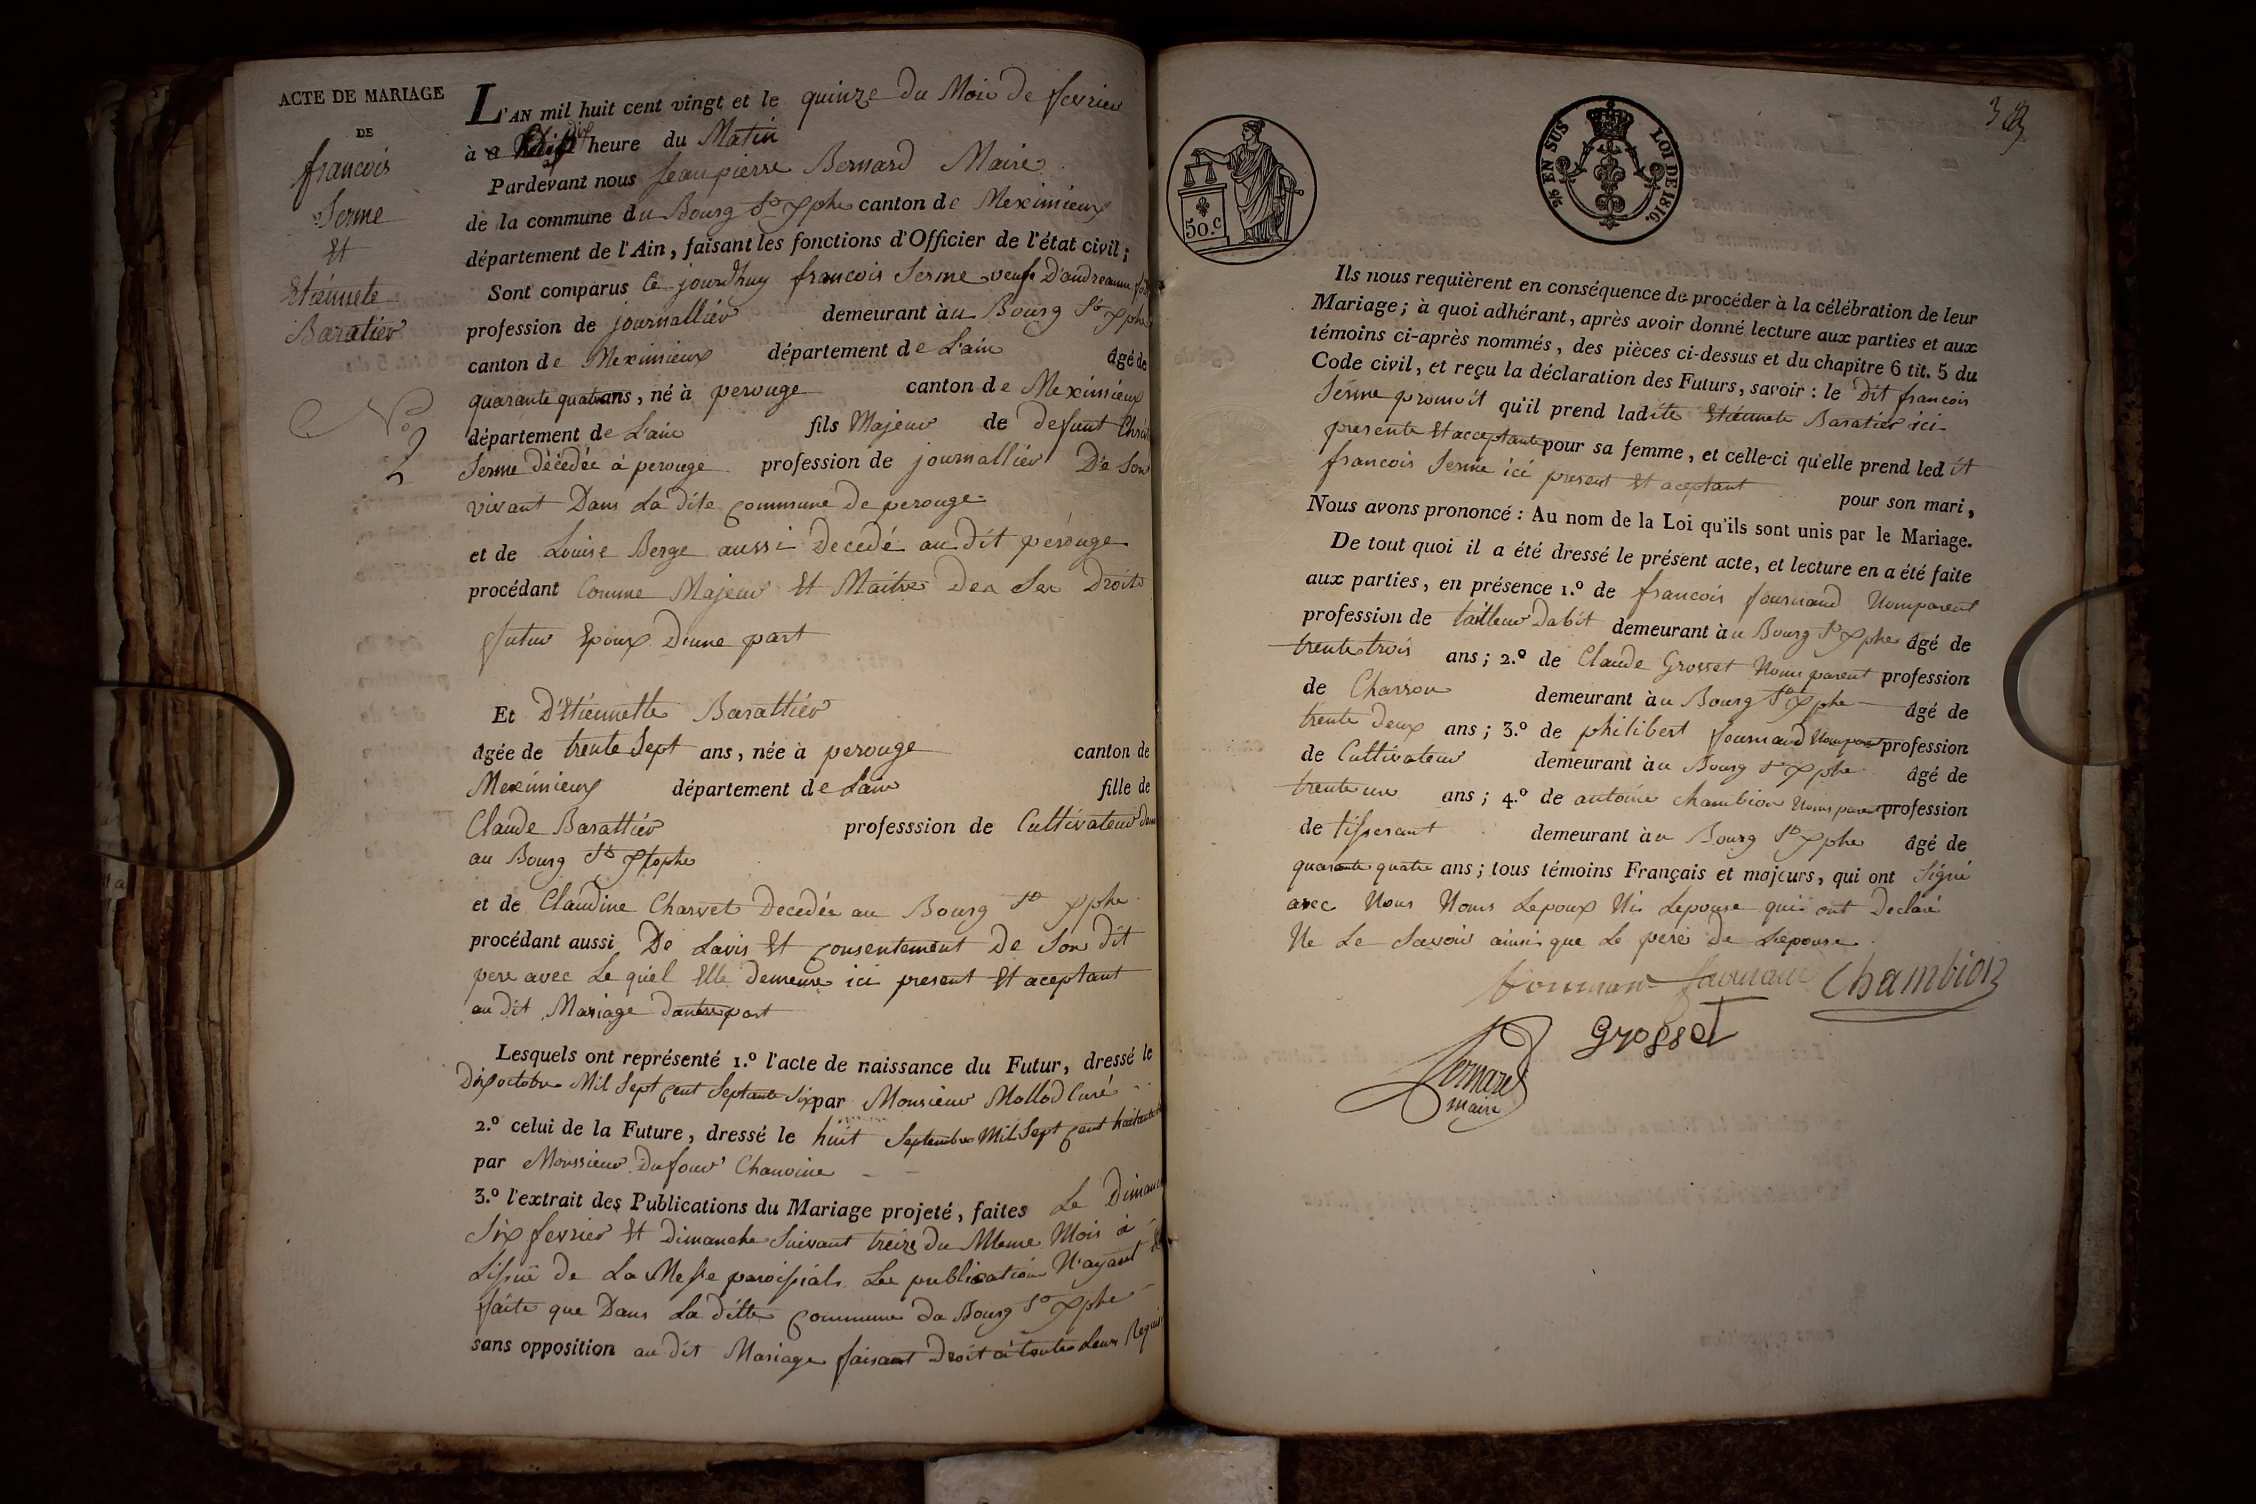 ACTE DE MARIAGE
DE
francois
Serme
Et
Etiennete
Baratier
N.o 2
L'AN mil huit cent vingt et le quinze du Mois de fevrier
à Dix heure du Matin
Pardevant nous Jeanpierre Bernard Maire
de la commune du Bourg St Xphe canton de Meximieux
département de l'Ain, faisant les fonctions d'Officier de l'état civil;
Sont comparus Ce jourdhuy francois Serme veuf D'andreanne
profession de journallier demeurant àu Bourg St Xphe
canton de Meximieux département de L'ain âgé de
quarante quatre ans, né à perouge canton de Meximieux
département de L'ain fils Majeur de defunt
Serme décédée à perouge profession de journallier De Son
vivant Dans La dite Commune de perouge
et de Louise Berge aussi Decedé au dit pérouge
procédant Comme Majeur Et Maitre Des Ses Droits
futur Epoux Dune part
Et D'Etiennette Barattier
âgée de trente Sept ans, née à perouge canton de
Meximieux département de Lain fille de
Claude Barattier professsion de Cultivateur
au Bourg St Xtophe
et de Claudine Charvet Decedée au Bourg St Xphe
procédant aussi De Lavis Et Consentement De Son Dit
pere avec Le quel Elle demeure ici present Et aceptant
au dit Mariage Dautre part
Lesquels ont représenté 1.º l'acte de naissance du Futur, dressé le
Dix octobre Mil Sept Cent Septante Six par Monsieur Mollod Curé
2.º celui de la Future, dressé le huit Septembre Mil Sept Cent
par Monssieur Dufour Chanoine
3.º l'extrait des Publications du Mariage projeté, faites Le Dimanche
Six fevrier Et dimanche Suivant treize Du Meme Mois à
Lissue de La Messe paroissiale Les publication N'ayant
faite que Dans La ditte Commune Du Bourg St Xphe
sans opposition au dit Mariage faisant Droit à toute Leur
50.C
25 EN SUS LOI DE 1816.
Ils nous requièrent en conséquence de procéder à la célébration de leur
Mariage; à quoi adhérant, après avoir donné lecture aux parties et aux
témoins ci-après nommés, des pièces ci-dessus et du chapitre 6 tit. 5 du
Code civil, et reçu la déclaration des Futurs, savoir: le Dit francois
Serme promoit qu'il prend ladite Etiennete Baratier ici
presente Et acceptante pour sa femme, et celle-ci qu'elle prend ledit
francois Serme ici present Et aceptant pour son mari,
Nous avons prononcé: Au nom de la Loi qu'ils sont unis par le Mariage.
De tout quoi il a été dressé le présent acte, et lecture en a été faite
aux parties, en présence 1.º de francois fournand Nomparent
profession de tailleur Dabit demeurant àu Bourg St Xphe âgé de
trente trois ans; 2.º de Claude Grosset Nomparent profession
de Charron demeurant àu Bourg St Xphe âgé de
trente Deux ans; 3.º de philibert fournand Nomparent profession
de Cultivateur demeurant àu Bourg St Xphe âgé de
trente une ans; 4.º de antoine chambion Nomparent profession
de tisserant demeurant àu Bourg St Xphe âgé de
quarante quatre ans; tous témoins Français et majeurs, qui ont Signé
avec Nous Nomis Lepoux Nis Lepouse qui ont Declaré
Ne Le Savoir ainsi que Le pere De Lepouse
fournand Chambion
Grosset
Bernard
maire